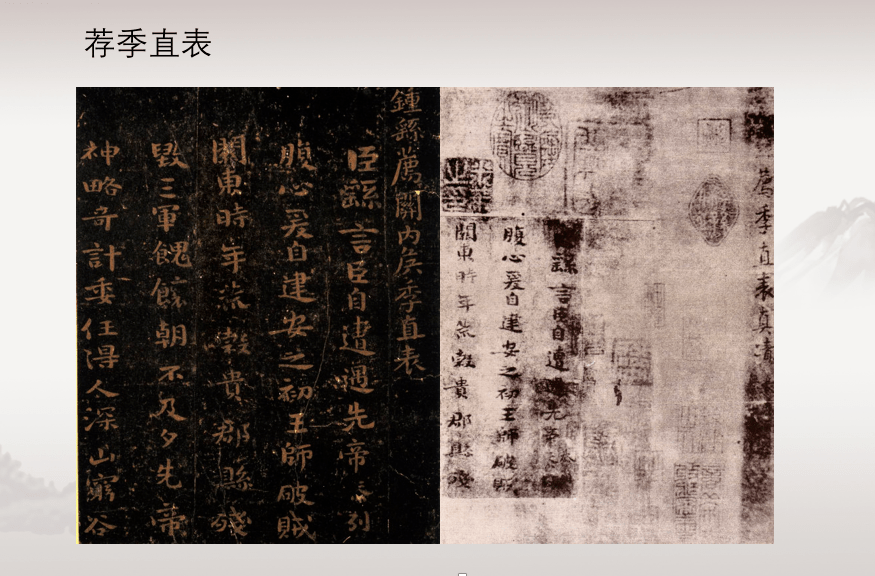 荐季直表
鍾繇薦關内侯季直表
臣繇言臣自遭遇先帝忝列
腹心爰自建安之初王師破賊
關東時年荒穀貴郡縣殘
毁三軍餽饟朝不及夕先帝
神略奇計委任得人深山窮谷
薦季直表真蹟
繇言臣自遭遇先帝
腹心爰自建安之初王師破賊
關東時年荒穀貴郡縣殘